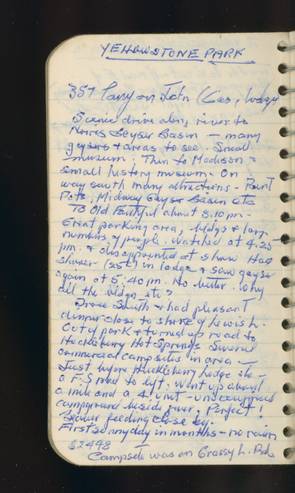 YELLOWSTONE PARK
357 Carry on John (Gas, lodge
Scenic drive along river to
Norris Geyser Basin — many
geysers & areas to see. Small
museum; Then to Madison &
small history museum. On
way south many attractions - Paint
Pots, Midway Geyser Basin etc
To Old Faithful about 3:10 pm.
Great parking area, bldgs & large
numbers of people. Watched at 4:25
pm. & disappointed at show. Had
shower (25¢) in lodge & saw geyser
again at 5:40 pm. No better. Why
all the bldgs, etc?
Drove South & had pleasant
dinner close to shore of Lewis L.
Out of park & turned up road to
Huckleberry Hot Springs. Several
commercial campsites in area —
Just before Huckleberry lodge
a F.S. road to left. Went up about
a mile and a 4 unit - unoccupied
campground beside river; Perfect!
Beaver feeding close by.
First sunny day in months - no rain
$2498
Campsite was on Grassy L. Rd.